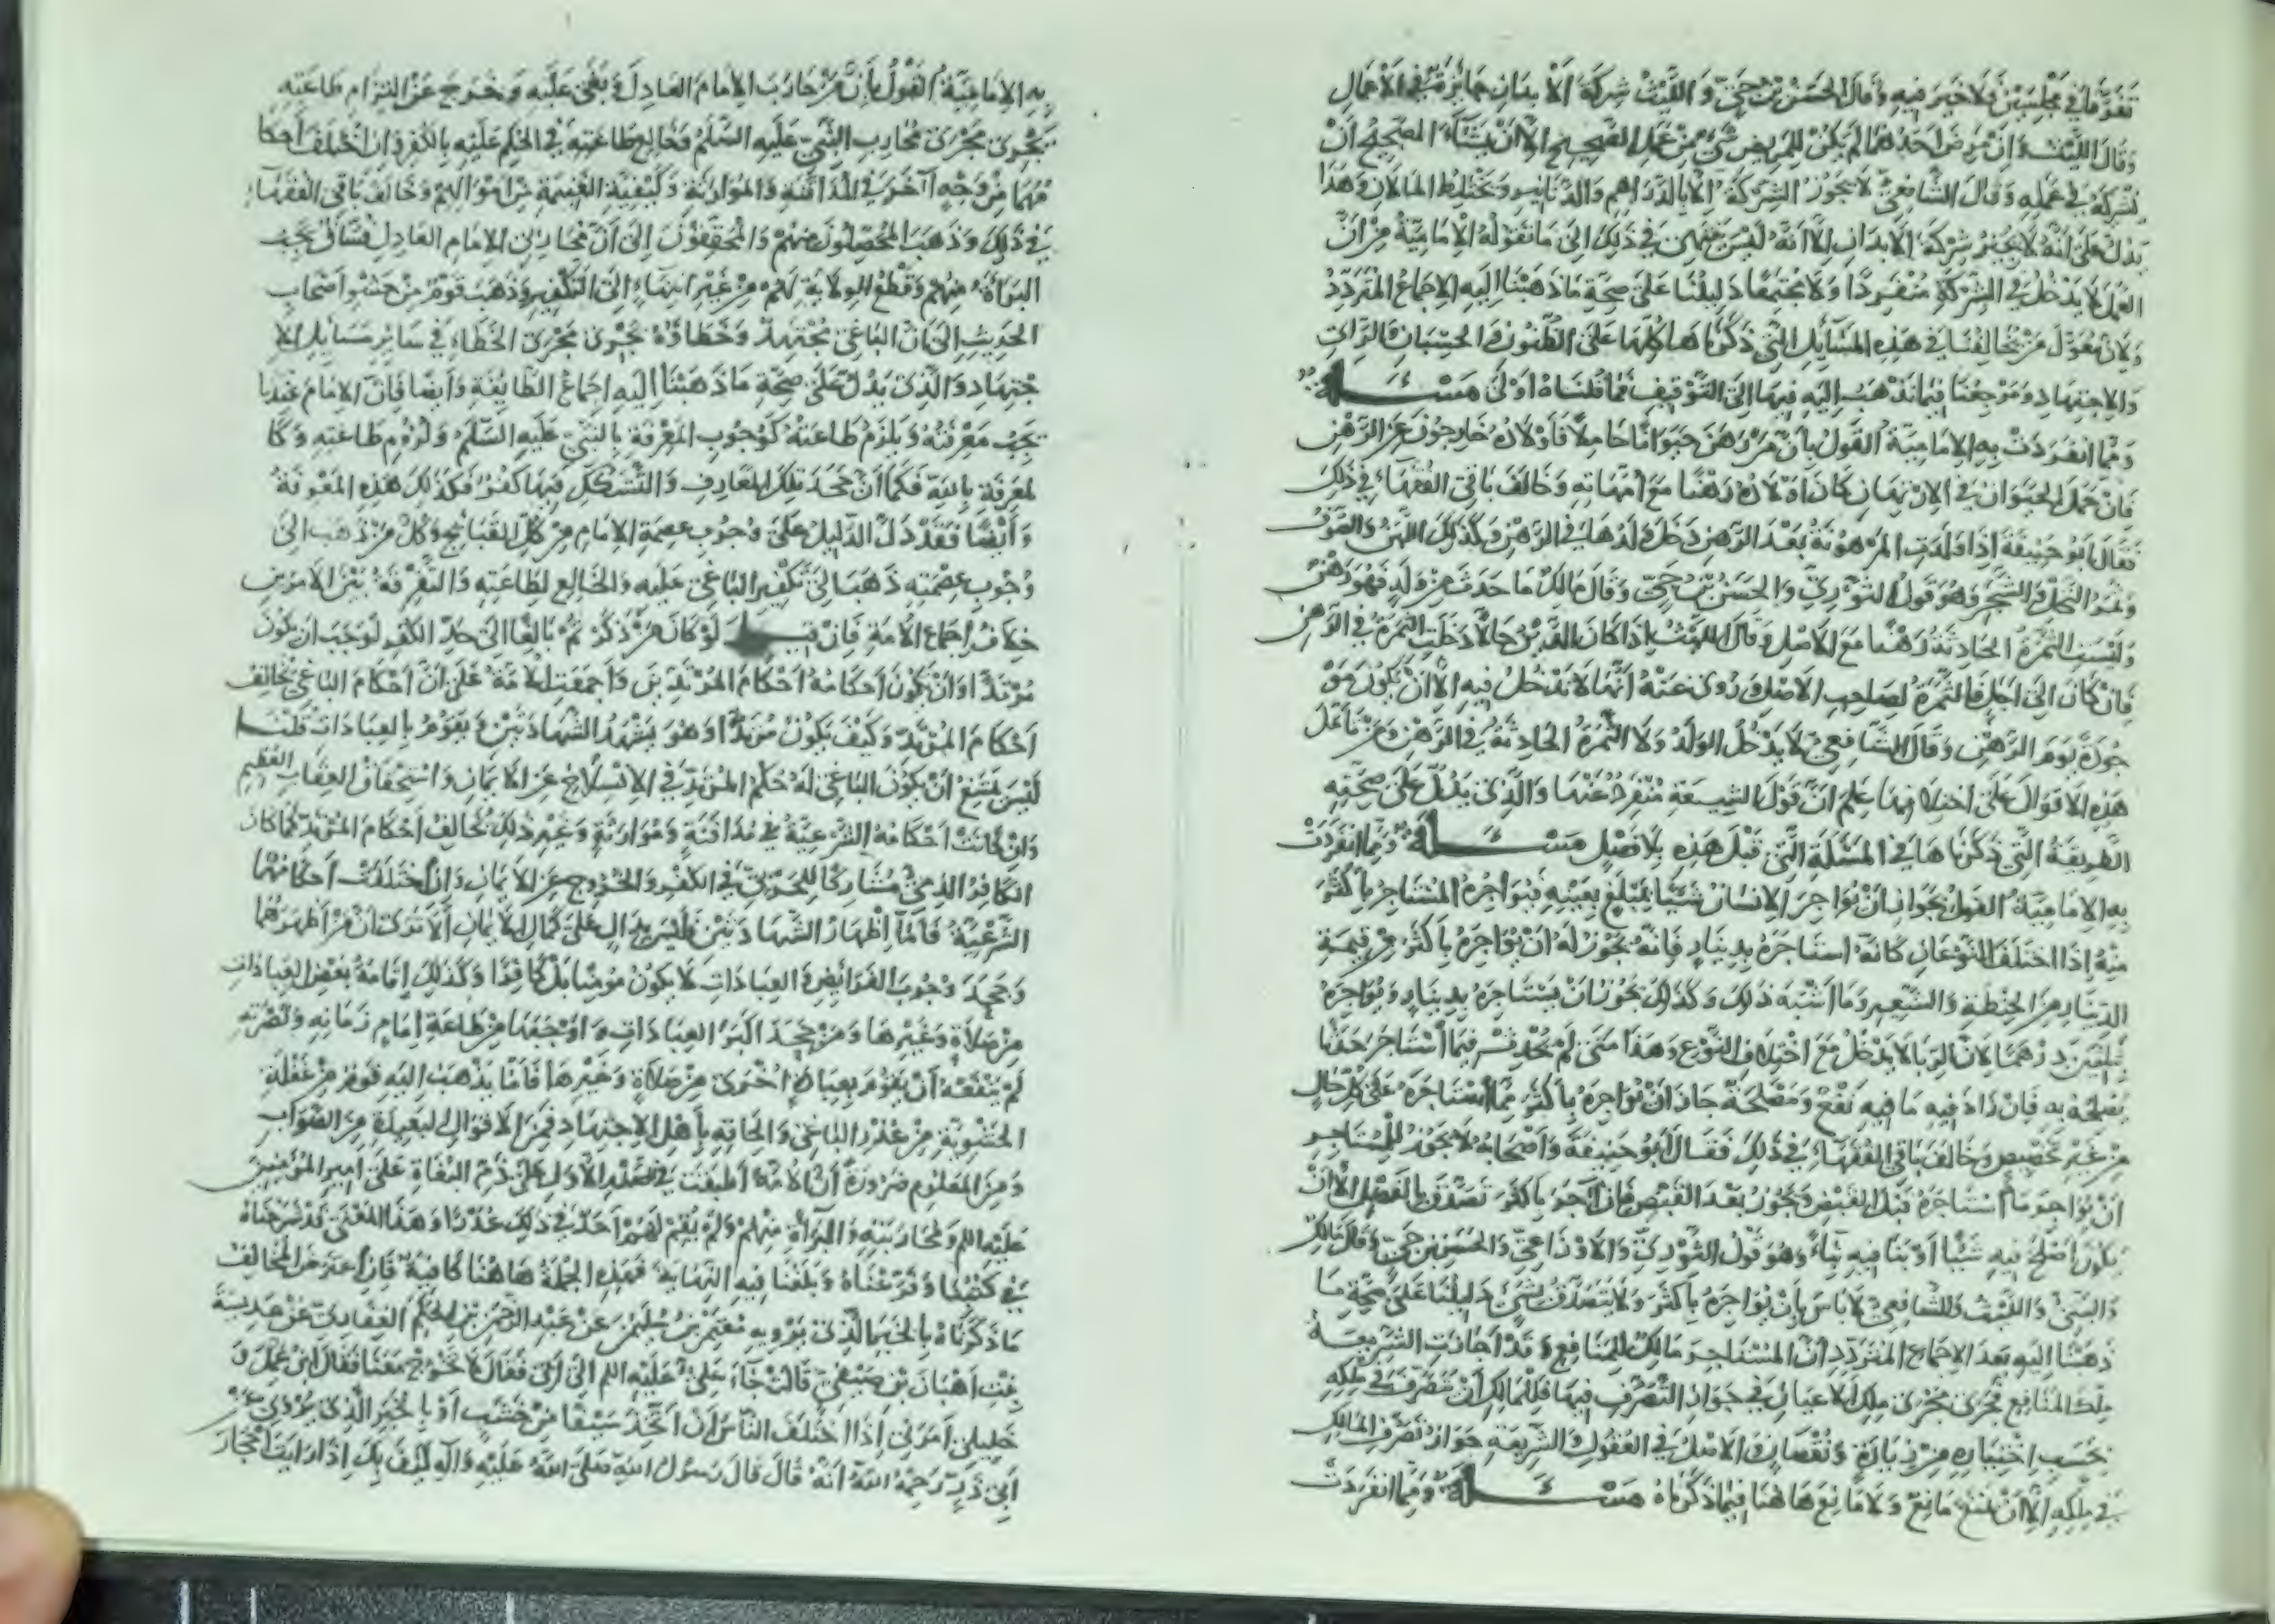 تفرقا في مجلسين فلا خير فيه وقال الحسن بن حي والليث شركة الابدان جائزة في الاعمال
وقال الليث ان مرض احدهما لم يكن للمريض شيء من عمل الصحيح الا ان يشاء الصحيح ان
يشركه في عمله وقال الشافعي لا يجوز الشركة الا بالدراهم والدنانير ويختلط المالان وهذا
يدل على انه لا يجيز شركة الابدان الا انه ليس ينتهي في ذلك الى ما تقوله الامامية من ان
العمل لا يدخل في الشركة منفردا ولا مجتمعا دليلنا على صحة ما ذهبنا اليه الاجماع المتردد
ولان معول من خالفنا في هذه المسائل التي ذكرناها كلها على الظنون والحسبان والراي
والاجتهاد ومرجعنا فيما نذهب اليه فيها الى التوقيف فما قلناه اولى مسئلة
ومما انفردت به الامامية القول بان من رهن حيوانا حاملا فاولاده خارجون عن الرهن
فان حمل الحيوان في الارتهان كان اولاده رهنا مع امهاته وخالف باقي الفقهاء في ذلك
فقال ابو حنيفة اذا ولدت المرهونة بعد الرهن دخل ولدها في الرهن وكذلك اللبن والصوف
وثمر النخل والشجر وهو قول الثوري والحسن بن حي وقال مالك ما حدث من ولد فهو رهن
وليست الثمرة الحادثة رهنا مع الاصل وقال الليث اذا كان الدين حالا دخلت الثمرة في الرهن
فان كان الى اجل فالثمرة لصاحب الاصل وروى عنه انها لا تدخل فيه الا ان يكون مو
جودة يوم الرهن وقال الشافعي لا يدخل الولد ولا الثمرة الحادثة في الرهن ومن تامل
هذه الاقوال على اختلافها علم ان قول الشيعة منفرد عنها والذي يدل على صحته
الطريقة التي ذكرناها في المسئلة التي قبل هذه بلا فصل مسئلة ومما انفردت
به الامامية القول بجواز ان يؤاجر الانسان شيئا بمبلغ بعينه فيؤاجره المستاجر باكثر
منه اذا اختلف النوعان كانه استاجره بدينار فانه يجوز له ان يؤاجره باكثر من قيمة
الدينار من الحنطة والشعير وما اشبه ذلك وكذلك يجوز ان يستاجره بدينار ويؤاجره
بثلثين درهما لان الربا لا يدخل مع اختلاف النوع وهذا متى لم يحدث فيما استاجر حدثا
يصلحه به فان زاد فيه ما فيه نفع ومصلحة جاز ان يؤاجره باكثر مما استاجره على كل حال
من غير تخصيص وخالف باقي الفقهاء في ذلك فقال ابو حنيفة واصحابه لا يجوز للمستاجر
ان يؤاجر ما استاجره قبل القبض ويجوز بعد القبض فان آجر باكثر تصدق بالفضل الا ان
يكون اصلح فيه شيئا او بنا فيه بناء وهو قول الثوري والاوزاعي والحسن بن حي وقال مالك
والبتي والليث والشافعي لا باس بان يؤاجره باكثر ولا يتصدق بشيء دليلنا على صحة ما
ذهبنا اليه بعد الاجماع المتردد ان المستاجر مالك للمنافع وقد اجازت الشريعة
ملك المنافع تجري مجرى ملك الاعيان في جواز التصرف فيها فللمالك ان يتصرف في ملكه
بحسب اختياره من زيادة ونقصان والاصل في العقول والشريعة جواز تصرف المالك
في ملكه الا ان يمنع مانع ولا مانع هاهنا فيما ذكرناه مسئلة ومما انفردت
به الامامية القول بان من حارب الامام العادل وبغى عليه وخرج عن التزام طاعته
يجري مجرى محارب النبي عليه السلم وخالع طاعته في الحكم عليه بالكفر وان اختلف احكا
مهما من وجه آخر في المدافنة والموارثة وكيفية الغنيمة من اموالهم وخالف باقي الفقهاء
في ذلك وذهب المحصلون منهم والمحققون الى ان محاربي الامام العادل فساق يجب
البراءة منهم وقطع الولاية لهم من غير انتهاء الى التكفير وذهب قوم من حشو اصحاب
الحديث الى ان الباغي مجتهد وخطاؤه يجري مجرى الخطاء في سائر مسائل الا
جتهاد والذي يدل على صحة ما ذهبنا اليه اجماع الطايفة وايضا فان الامام عندنا
يجب معرفته ويلزم طاعته كوجوب المعرفة بالنبي عليه السلم ولزوم طاعته وكا
لمعرفة بالله فكما ان جحد تلك المعارف والتشكك فيها كفر فكذلك هذه المعرفة
وايضا فقد دل الدليل على وجوب عصمة الامام من كل القبايح وكل من ذهب الى
وجوب عصمته ذهب الى تكفير الباغي عليه والخالع لطاعته والتفرقة بين الامرين
خلاف اجماع الامة فان قيل لو كان من ذكرتم بالغا الى حد الكفر لوجب ان يكون
مرتدا وان يكون احكامه احكام المرتدين واجمعت الامة على ان احكام الباغي تخالف
احكام المرتد وكيف يكون مرتدا وهو يشهد الشهادتين ويقوم بالعبادات قلنا
ليس يمتنع ان يكون الباغي له حكم المرتد في الانسلاخ عن الايمان واستحقاق العقاب العظيم
وان كانت احكامه الشرعية في مدافنة وموارثة وغير ذلك تخالف احكام المرتد كما كان
الكافر الذمي مشاركا للحربي في الكفر والخروج عن الايمان وان اختلفت احكامهما
الشرعية فاما اظهار الشهادتين فليس بدال على كمال الايمان الا ترى ان من اظهرهما
وجحد وجوب الفرائض والعبادات لا يكون مؤمنا بل كافرا وكذلك اقامة بعض العبادات
من صلاة وغيرها ومن جحد اكبر العبادات واوجبها من طاعة امام زمانه ونصرته
لم ينفعه ان يقوم بعبادة اخرى من صلاة وغيرها فاما يذهب اليه قوم من غفلة
الحشوية من عذر الباغي والحاقه باهل الاجتهاد فمن الاقوال البعيدة من الصواب
ومن المعلوم ضرورة ان الامة اطبقت في الصدر الاول على ذم البغاة على امير المؤمنين
عليه السلم ومحاربته والبراءة منهم ولم يقم لهم احد في ذلك عذرا وهذا المعنى قد شرحناه
في كتبنا وفرعناه وبلغنا فيه النهاية فهذه الجملة هاهنا كافية فان اعترض المخالف
ما ذكرناه بالخبر الذي يرويه معتمر بن سليمن عن عبد الرحمن بن الحكم الغفاري عن عديسة
بنت اهبان بن صيفي قالت جاء علي عليه السلم الى ابي فقال الا تخرج معنا فقال ابن عمك و
خليلي امرني اذا اختلف الناس ان اتخذ سيفا من خشب او بالخبر الذي يروي عن
ابي ذر رحمه الله انه قال قال رسول الله صلى الله عليه وآله كيف بك اذا رايت احجار